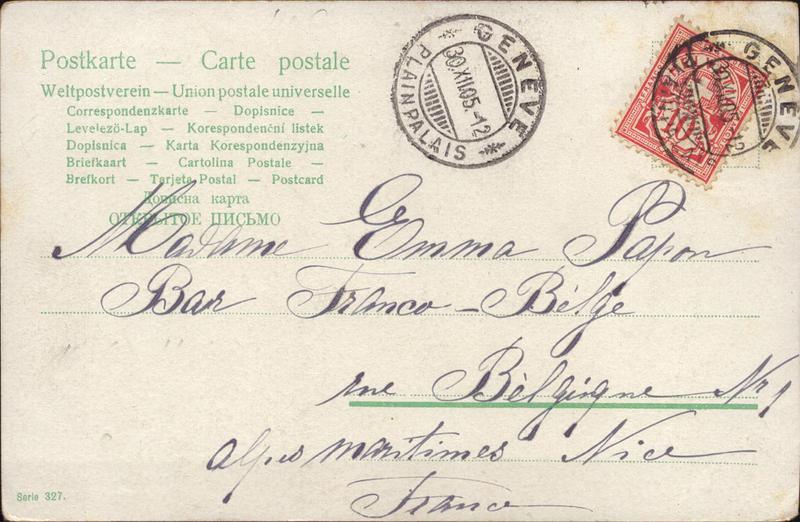 Postkarte — Carte postale
Weltpostverein — Union postale universelle
Correspondenzkarte — Dopisnice —
Levelező-Lap — Korespondenční listek
Dopisnica — Karta Korespondenzyjna
Briefkaart — Cartolina Postale —
Brefkort — Tarjeta Postal — Postcard
Дописна карта
ОТКРЫТОЕ ПИСЬМО
GENÈVE
30.XII.05.-12
PLAINPALAIS
GENÈVE
10
Madame Emma Papon
Bar Franco-Bèlge
rue Bèlgique Nr 1
Alpes maritimes Nice
France
Serie 327.